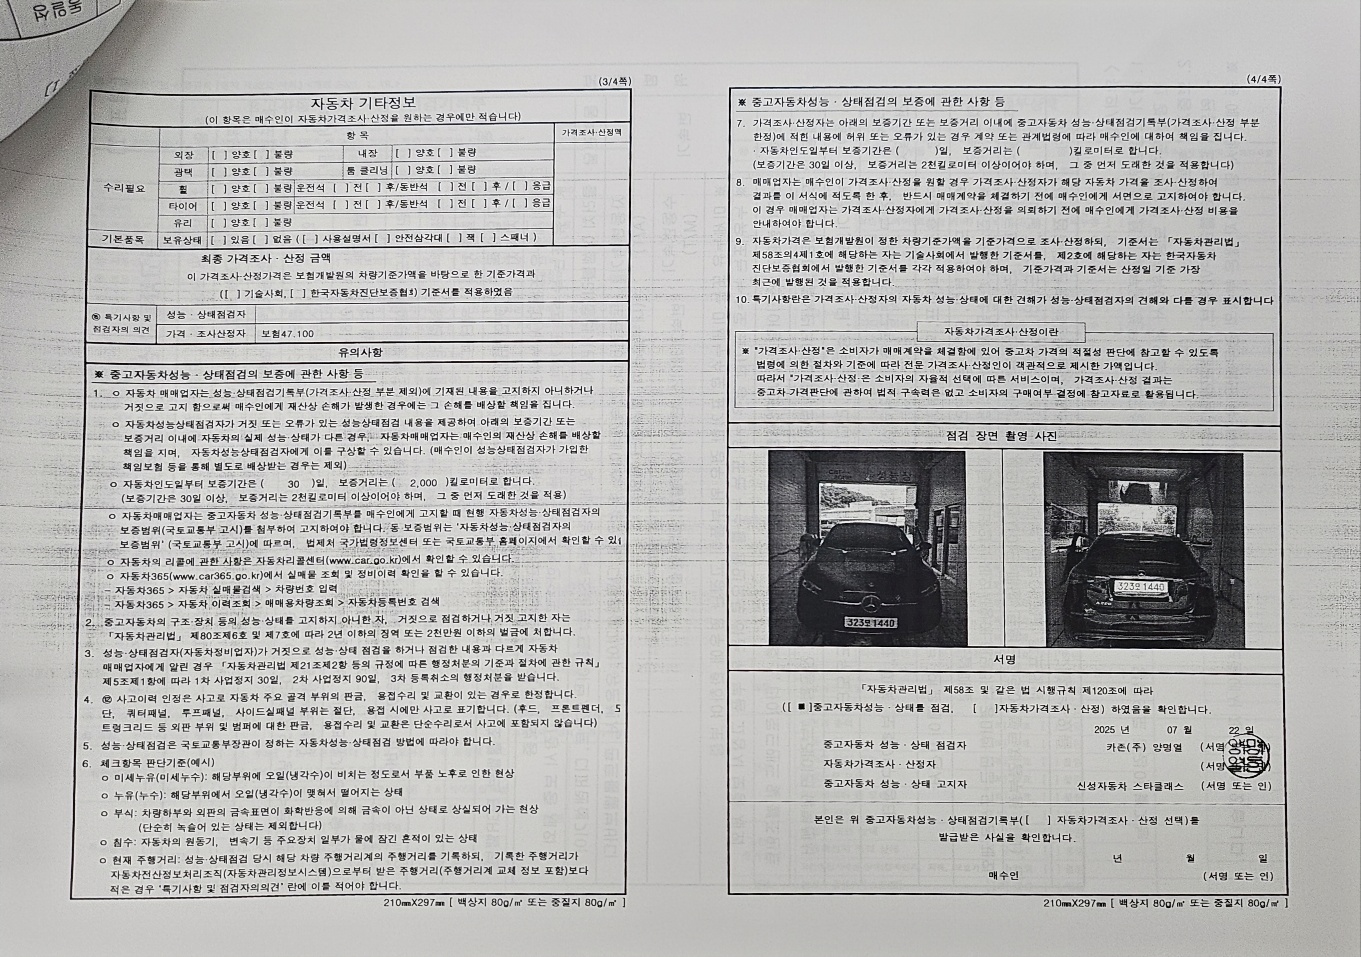 (3/4쪽)
자동차 기타정보
(이 항목은 매수인이 자동차가격조사·산정을 원하는 경우에만 적습니다)
항 목
가격조사·산정액
수리필요
외장 [ ] 양호 [ ] 불량 내장 [ ] 양호 [ ] 불량
광택 [ ] 양호 [ ] 불량 룸 클리닝 [ ] 양호 [ ] 불량
휠 [ ] 양호 [ ] 불량 운전석 [ ] 전 [ ] 후/동반석 [ ] 전 [ ] 후 / [ ] 응급
타이어 [ ] 양호 [ ] 불량 운전석 [ ] 전 [ ] 후/동반석 [ ] 전 [ ] 후 / [ ] 응급
유리 [ ] 양호 [ ] 불량
기본품목 보유상태 [ ] 있음 [ ] 없음 ( [ ] 사용설명서 [ ] 안전삼각대 [ ] 잭 [ ] 스패너 )
최종 가격조사 · 산정 금액
이 가격조사·산정가격은 보험개발원의 차량기준가액을 바탕으로 한 기준가격과
( [ ] 기술사회, [ ] 한국자동차진단보증협회) 기준서를 적용하였음
특기사항 및
점검자의 의견
성능 · 상태점검자
가격 · 조사산정자 보험47,100
유의사항
※ 중고자동차성능 · 상태점검의 보증에 관한 사항 등
1. ㅇ 자동차 매매업자는 성능·상태점검기록부(가격조사·산정 부분 제외)에 기재된 내용을 고지하지 아니하거나
거짓으로 고지 함으로써 매수인에게 재산상 손해가 발생한 경우에는 그 손해를 배상할 책임을 집니다.
ㅇ 자동차성능상태점검자가 거짓 또는 오류가 있는 성능상태점검 내용을 제공하여 아래의 보증기간 또는
보증거리 이내에 자동차의 실제 성능·상태가 다른 경우, 자동차매매업자는 매수인의 재산상 손해를 배상할
책임을 지며, 자동차성능상태점검자에게 이를 구상할 수 있습니다. (매수인이 성능상태점검자가 가입한
책임보험 등을 통해 별도로 배상받는 경우는 제외)
ㅇ 자동차인도일부터 보증기간은 ( 30 )일, 보증거리는 ( 2,000 )킬로미터로 합니다.
(보증기간은 30일 이상, 보증거리는 2천킬로미터 이상이어야 하며, 그 중 먼저 도래한 것을 적용)
ㅇ 자동차매매업자는 중고자동차 성능·상태점검기록부를 매수인에게 고지할 때 현행 자동차성능·상태점검자의
보증범위(국토교통부 고시)를 첨부하여 고지하여야 합니다. 동 보증범위는 '자동차성능·상태점검자의
보증범위' (국토교통부 고시)에 따르며, 법제처 국가법령정보센터 또는 국토교통부 홈페이지에서 확인할 수 있
ㅇ 자동차의 리콜에 관한 사항은 자동차리콜센터(www.car.go.kr)에서 확인할 수 있습니다.
ㅇ 자동차365(www.car365.go.kr)에서 실매물 조회 및 정비이력 확인을 할 수 있습니다.
- 자동차365 > 자동차 실매물검색 > 차량번호 입력
- 자동차365 > 자동차 이력조회 > 매매용차량조회 > 자동차등록번호 검색
2. 중고자동차의 구조·장치 등의 성능·상태를 고지하지 아니한 자, 거짓으로 점검하거나 거짓 고지한 자는
「자동차관리법」 제80조제6호 및 제7호에 따라 2년 이하의 징역 또는 2천만원 이하의 벌금에 처합니다.
3. 성능·상태점검자(자동차정비업자)가 거짓으로 성능·상태 점검을 하거나 점검한 내용과 다르게 자동차
매매업자에게 알린 경우 「자동차관리법 제21조제2항 등의 규정에 따른 행정처분의 기준과 절차에 관한 규칙」
제5조제1항에 따라 1차 사업정지 30일, 2차 사업정지 90일, 3차 등록취소의 행정처분을 받습니다.
4. ⑫ 사고이력 인정은 사고로 자동차 주요 골격 부위의 판금, 용접수리 및 교환이 있는 경우로 한정합니다.
단, 쿼터패널, 루프패널, 사이드실패널 부위는 절단, 용접 시에만 사고로 표기합니다. (후드, 프론트펜더,
트렁크리드 등 외판 부위 및 범퍼에 대한 판금, 용접수리 및 교환은 단순수리로서 사고에 포함되지 않습니다)
5. 성능·상태점검은 국토교통부장관이 정하는 자동차성능·상태점검 방법에 따라야 합니다.
6. 체크항목 판단기준(예시)
ㅇ 미세누유(미세누수): 해당부위에 오일(냉각수)이 비치는 정도로서 부품 노후로 인한 현상
ㅇ 누유(누수): 해당부위에서 오일(냉각수)이 맺혀서 떨어지는 상태
ㅇ 부식: 차량하부와 외판의 금속표면이 화학반응에 의해 금속이 아닌 상태로 상실되어 가는 현상
(단순히 녹슬어 있는 상태는 제외합니다)
ㅇ 침수: 자동차의 원동기, 변속기 등 주요장치 일부가 물에 잠긴 흔적이 있는 상태
ㅇ 현재 주행거리: 성능·상태점검 당시 해당 차량 주행거리계의 주행거리를 기록하되, 기록한 주행거리가
자동차전산정보처리조직(자동차관리정보시스템)으로부터 받은 주행거리(주행거리계 교체 정보 포함)보다
적은 경우 '특기사항 및 점검자의의견' 란에 이를 적어야 합니다.
210㎜X297㎜ [ 백상지 80g/㎡ 또는 중질지 80g/㎡ ]
(4/4쪽)
※ 중고자동차성능 · 상태점검의 보증에 관한 사항 등
7. 가격조사·산정자는 아래의 보증기간 또는 보증거리 이내에 중고자동차 성능·상태점검기록부(가격조사·산정 부분
한정)에 적힌 내용에 허위 또는 오류가 있는 경우 계약 또는 관계법령에 따라 매수인에 대하여 책임을 집니다.
· 자동차인도일부터 보증기간은 ( )일, 보증거리는 ( )킬로미터로 합니다.
(보증기간은 30일 이상, 보증거리는 2천킬로미터 이상이어야 하며, 그 중 먼저 도래한 것을 적용합니다)
8. 매매업자는 매수인이 가격조사·산정을 원할 경우 가격조사·산정자가 해당 자동차 가격을 조사·산정하여
결과를 이 서식에 적도록 한 후, 반드시 매매계약을 체결하기 전에 매수인에게 서면으로 고지하여야 합니다.
이 경우 매매업자는 가격조사·산정자에게 가격조사·산정을 의뢰하기 전에 매수인에게 가격조사·산정 비용을
안내하여야 합니다.
9. 자동차가격은 보험개발원이 정한 차량기준가액을 기준가격으로 조사·산정하되, 기준서는 「자동차관리법」
제58조의4제1호에 해당하는 자는 기술사회에서 발행한 기준서를, 제2호에 해당하는 자는 한국자동차
진단보증협회에서 발행한 기준서를 각각 적용하여야 하며, 기준가격과 기준서는 산정일 기준 가장
최근에 발행된 것을 적용합니다.
10. 특기사항란은 가격조사·산정자의 자동차 성능·상태에 대한 견해가 성능·상태점검자의 견해와 다를 경우 표시합니다
자동차가격조사·산정이란
※ "가격조사·산정"은 소비자가 매매계약을 체결함에 있어 중고차 가격의 적절성 판단에 참고할 수 있도록
법령에 의한 절차와 기준에 따라 전문 가격조사·산정인이 객관적으로 제시한 가액입니다.
따라서 "가격조사·산정"은 소비자의 자율적 선택에 따른 서비스이며, 가격조사·산정 결과는
중고차 가격판단에 관하여 법적 구속력은 없고 소비자의 구매여부 결정에 참고자료로 활용됩니다.
점검 장면 촬영 사진
323모1440
323모1440
서명
「자동차관리법」 제58조 및 같은 법 시행규칙 제120조에 따라
([ ■ ]중고자동차성능·상태를 점검, [ ]자동차가격조사 · 산정) 하였음을 확인합니다.
2025 년 07 월 22 일
중고자동차 성능 · 상태 점검자 카존(주) 양명열 (서명 또는 인)
자동차가격조사 · 산정자 (서명 또는 인)
중고자동차 성능 · 상태 고지자 신성자동차 스타클래스 (서명 또는 인)
본인은 위 중고자동차성능 · 상태점검기록부([ ] 자동차가격조사 · 산정 선택)를
발급받은 사실을 확인합니다.
년 월 일
매수인 (서명 또는 인)
210㎜X297㎜ [ 백상지 80g/㎡ 또는 중질지 80g/㎡ ]